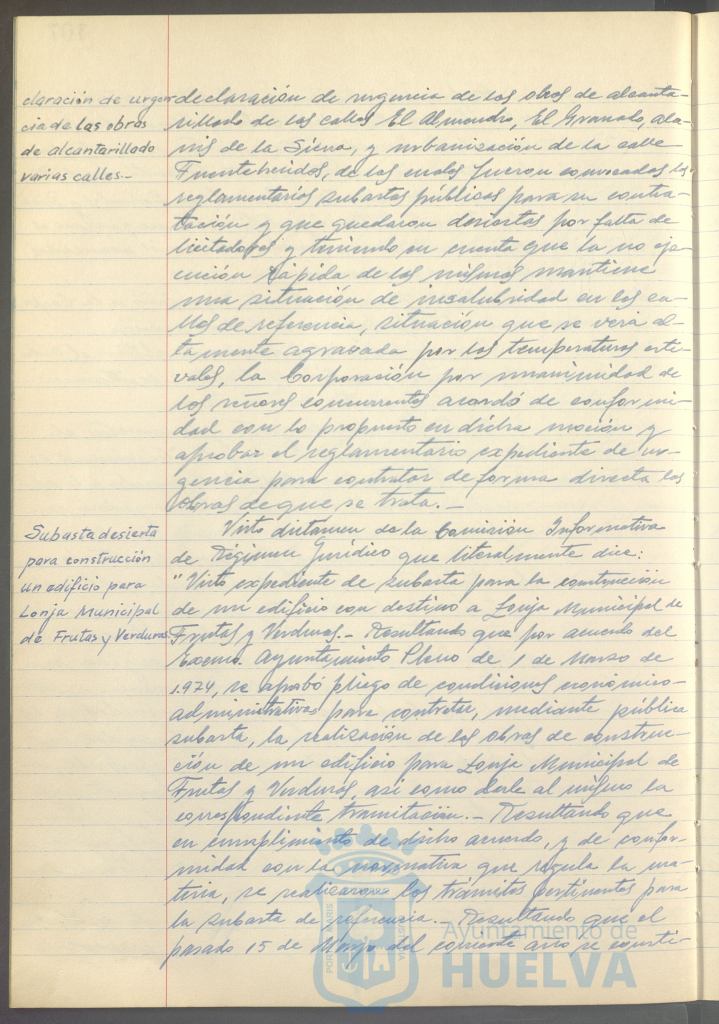 claración de urgen
cia de las obras
de alcantarillado
varias calles.-
declaración de urgencia de las obras de alcanta-
rillado de las calles El Almendro, El Granado, Ala-
nis de la Sierra, y urbanización de la calle
Fuenteheridos, de las cuales fueron convocadas las
reglamentarias subastas públicas para su contra-
tación y que quedaron desiertas por falta de
licitadores y teniendo en cuenta que la no eje-
cución rápida de las mismas mantiene
una situación de insalubridad en las ca-
lles de referencia, situación que se verá al-
tamente agravada por las temperaturas esti-
vales, la Corporación por unanimidad de
los señores concurrentes acordó de conformi-
dad con lo propuesto en dicha moción y
aprobar el reglamentario expediente de ur-
gencia para contratar de forma directa las
obras de que se trata.-
Subasta desierta
para construcción
un edificio para
Lonja Municipal
de Frutas y Verduras
Visto dictamen de la Comisión Informativa
de Régimen Jurídico que literalmente dice:
"Visto expediente de subasta para la construcción
de un edificio con destino a Lonja Municipal de
Frutas y Verduras.- Resultando que por acuerdo del
Excmo. Ayuntamiento Pleno de 1 de Marzo de
1.974, se aprobó pliego de condiciones económico-
administrativas para contratar, mediante pública
subasta, la realización de las obras de construc-
ción de un edificio para Lonja Municipal de
Frutas y Verduras, así como darle al mismo la
correspondiente tramitación.- Resultando que
en cumplimiento de dicho acuerdo, y de confor-
midad con la normativa que regula la ma-
teria, se realizaron los trámites pertinentes para
la subasta de referencia.- Resultando que el
pasado 15 de Mayo del corriente año se consti-
Ayuntamiento de
HUELVA